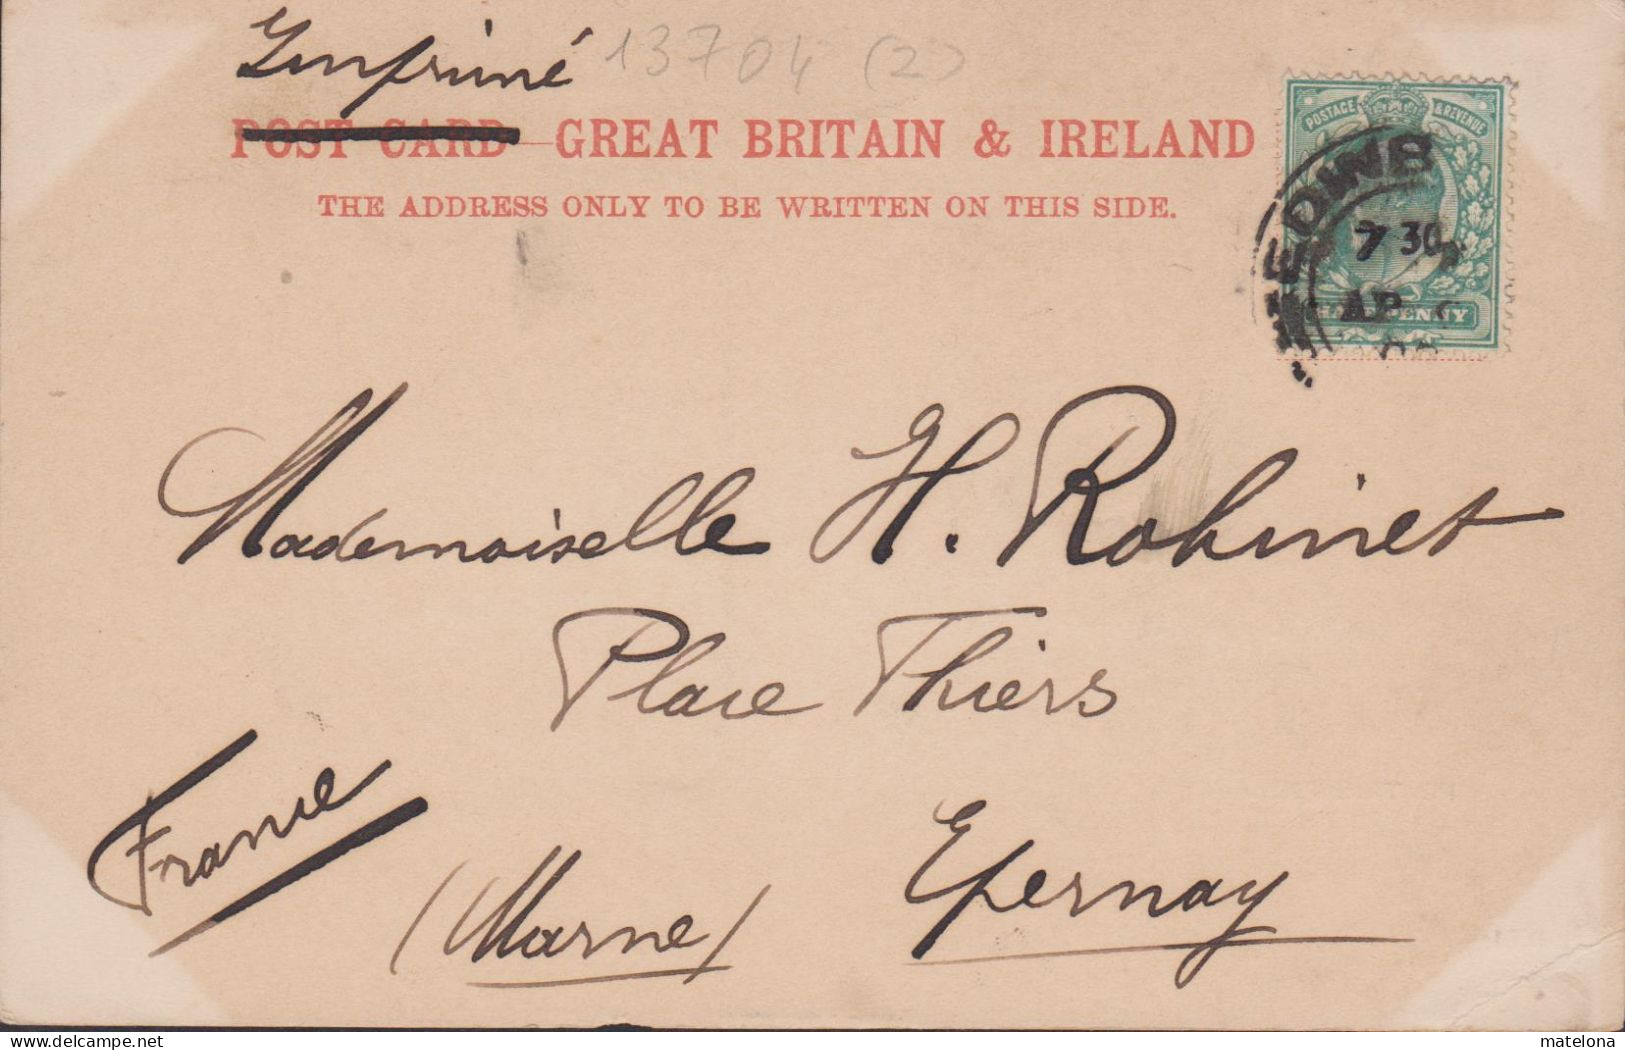 Imprimé 13704 (2)
POST CARD GREAT BRITAIN & IRELAND
THE ADDRESS ONLY TO BE WRITTEN ON THIS SIDE.
POSTAGE & REVENUE
7 30
AP
HALFPENNY
Mademoiselle H. Robinet
Place Thiers
France
Epernay
(Marne)
delcampe.net
matelona